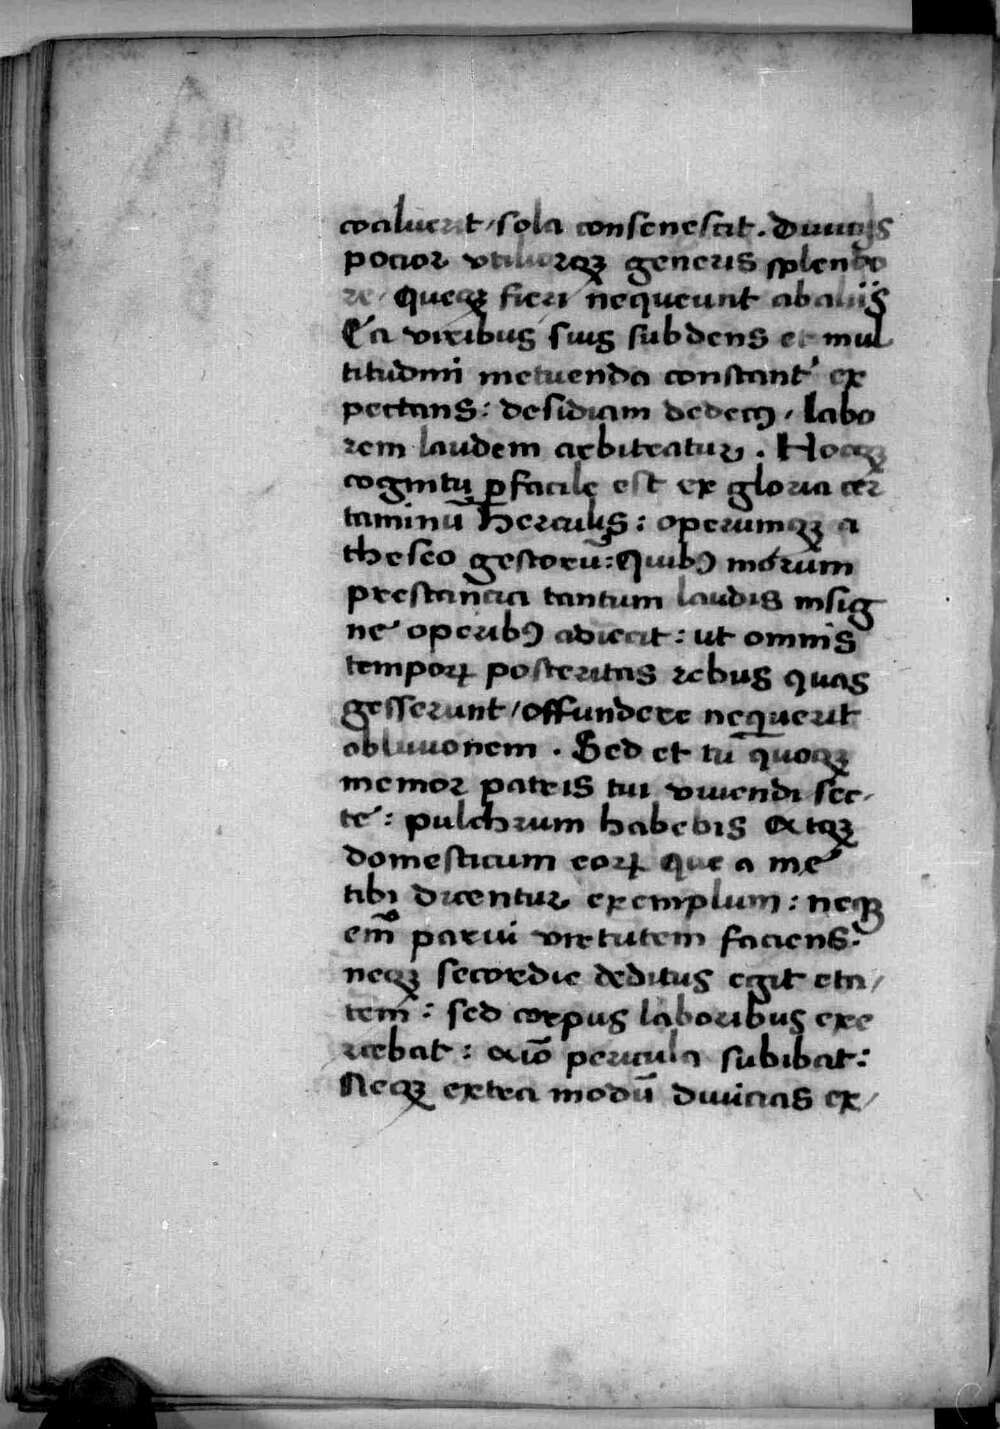 coaluerit / sola consenescit . Diuitijs
pocior vtiliorqꝫ generis splendo
re / Queqꝫ fieri nequeunt ab alijs
Ea viribus suis subdens et mul
titudini metuenda constant' ex
pectans : desidiam dedecꝰ / labo
rem laudem arbitratur . Hocqꝫ
cognitu ꝑfacile est ex gloria cer
taminū herculis : operumqꝫ a
theseo gestorū : Quibꝰ morum
prestancia tantum laudis insig
ne operibꝰ adiecit : ut omnis
temporꝝ posteritas rebus quas
gesserunt / offundere nequerit
obliuionem . Sed et tu quoqꝫ
memor patris tui viuendi sec /
te : pulchrum habebis atqꝫ
domesticum eorꝝ que a me
tibi dicentur exemplum : neqꝫ
em̄ parui virtutem faciens :
neqꝫ secordie deditus egit eta /
tem : sed corpus laboribus exe
rcebat : aīo pericula subibat :
Neqꝫ extra modū diuicias ex /